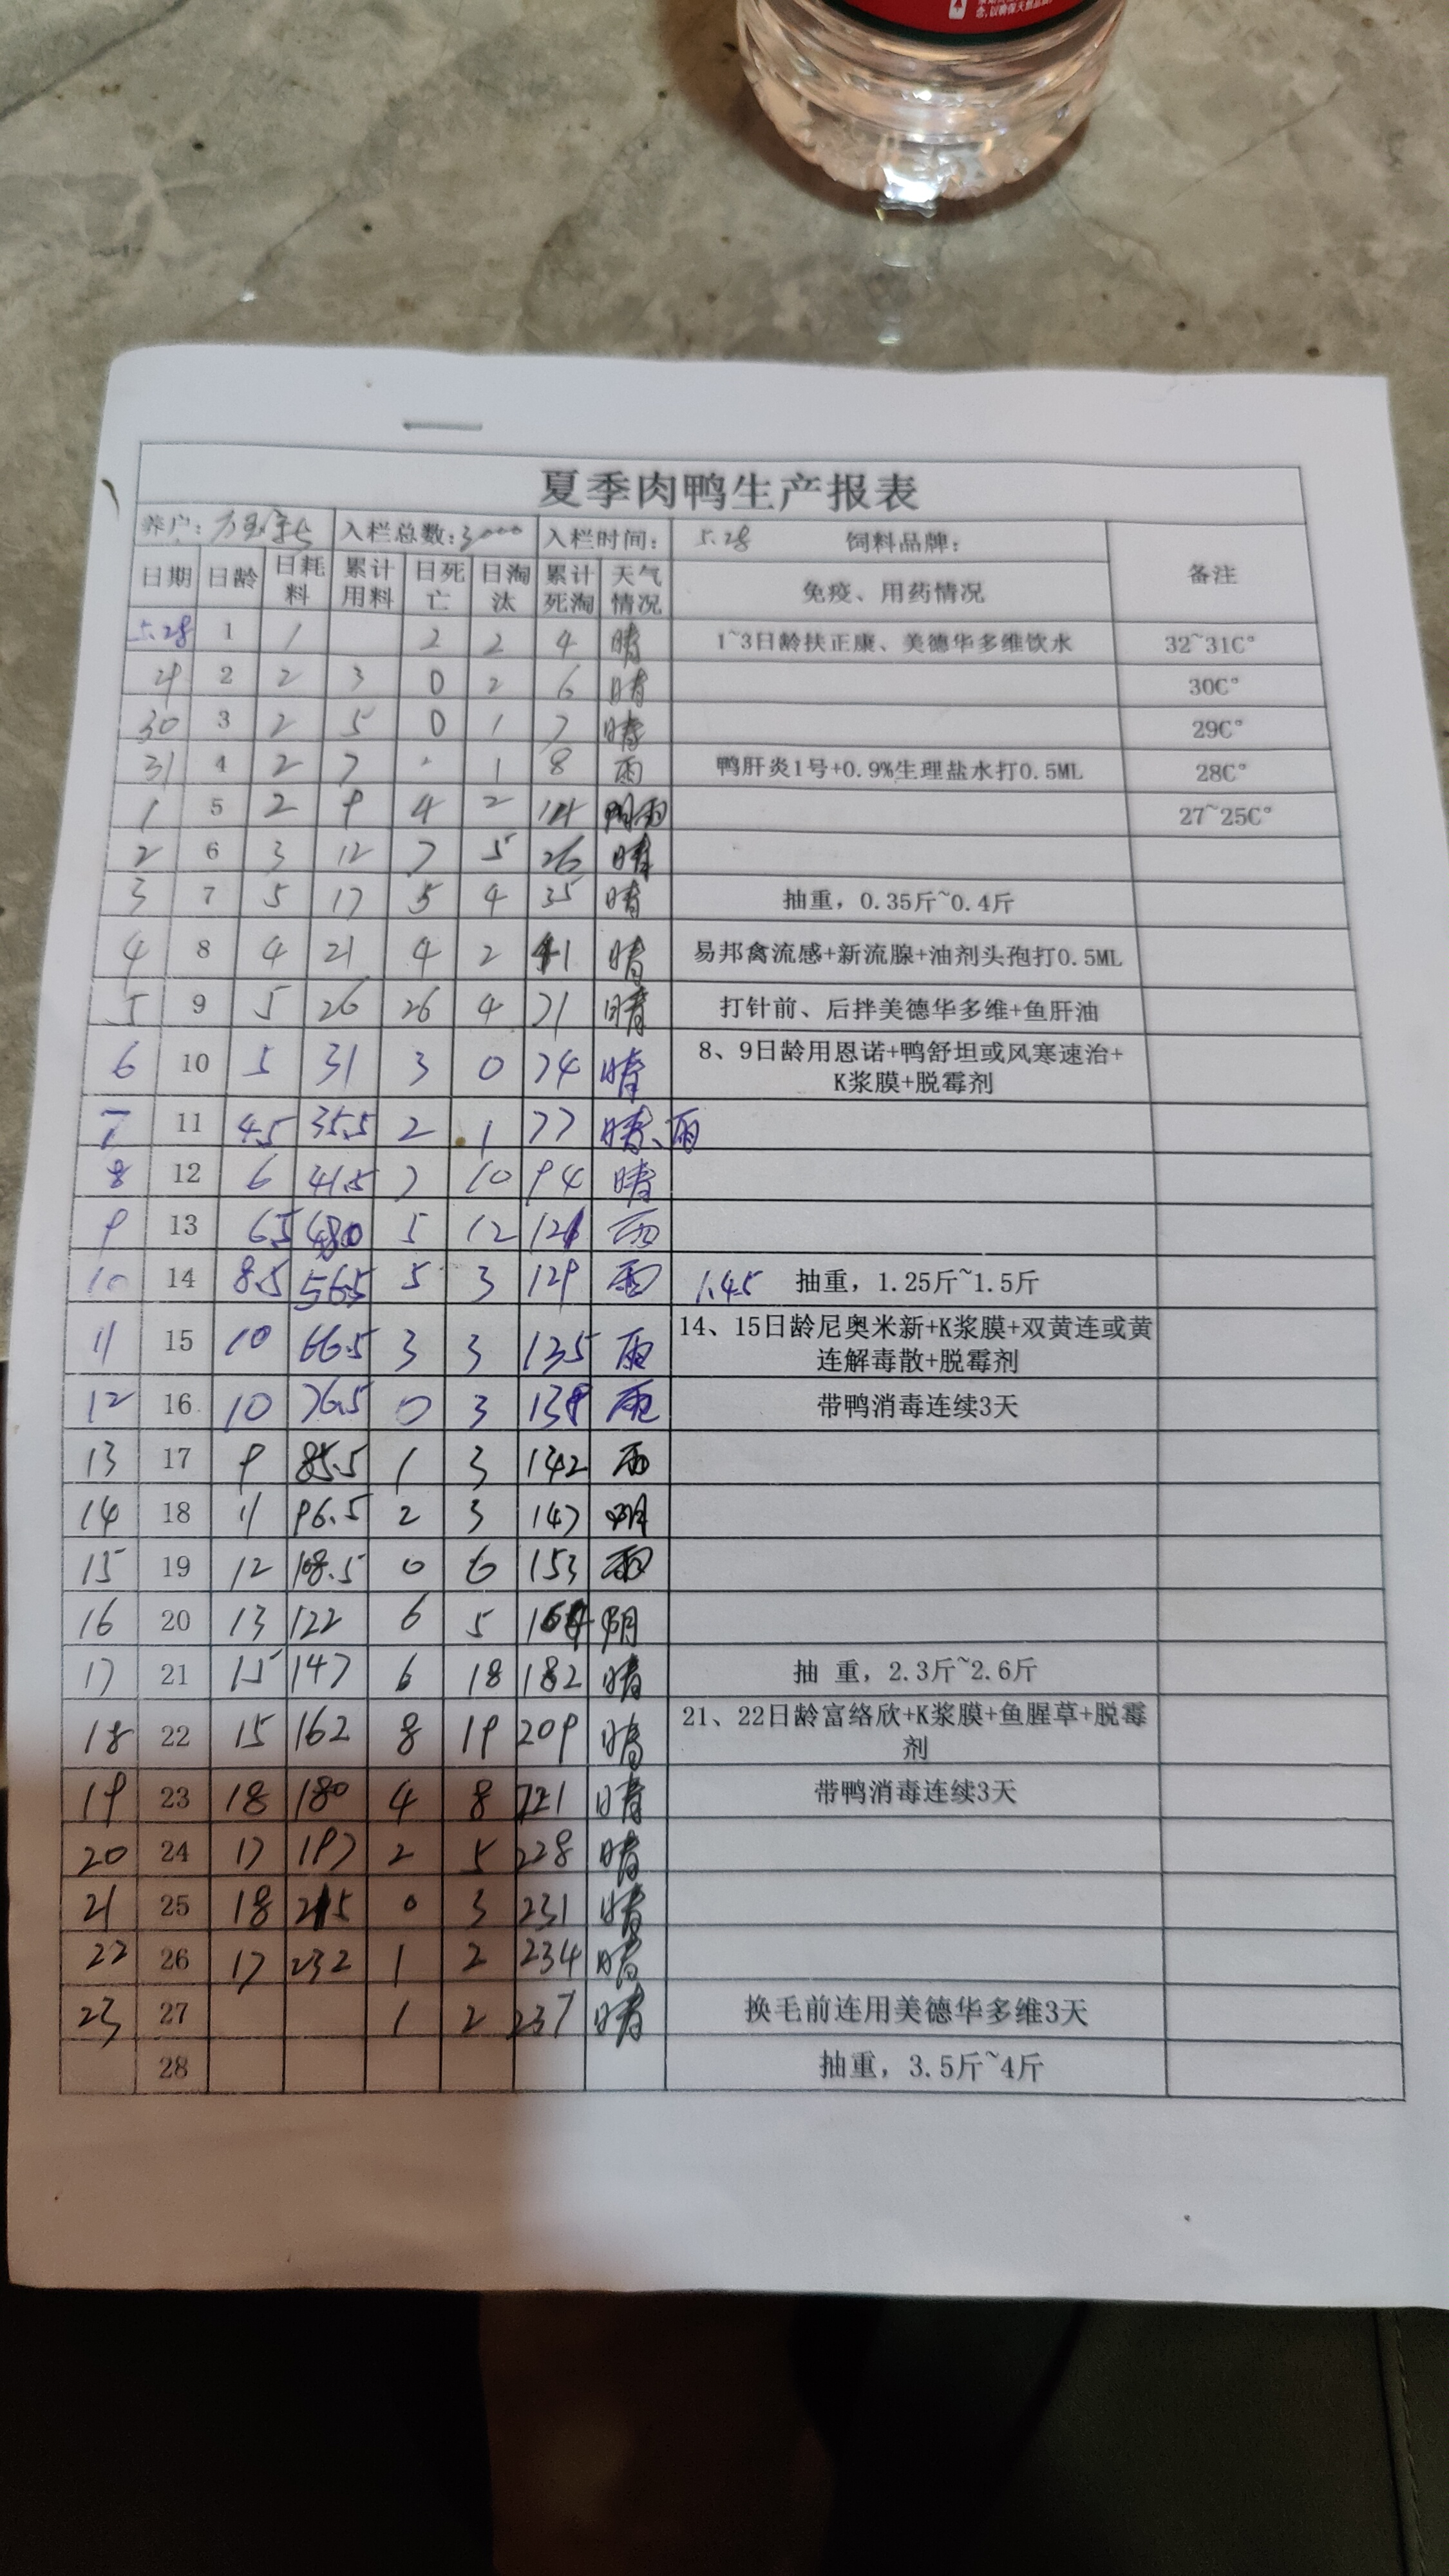 念,以确保天然品质
夏季肉鸭生产报表
养户: 入栏总数:3000 入栏时间: 5.28 饲料品牌:
日期 日龄 日耗料 累计用料 日死亡 日淘汰 累计死淘 天气情况 免疫、用药情况 备注
5.28 1 1 2 2 4 晴 1~3日龄扶正康、美德华多维饮水 32~31C°
2 2 3 0 2 6 晴 30C°
30 3 2 5 0 1 7 晴 29C°
31 4 2 7 1 8 雨 鸭肝炎1号+0.9%生理盐水打0.5ML 28C°
1 5 2 9 4 2 14 阴雨 27~25C°
2 6 3 12 7 5 26 晴
3 7 5 17 5 4 35 晴 抽重，0.35斤~0.4斤
4 8 4 21 4 2 41 晴 易邦禽流感+新流腺+油剂头孢打0.5ML
5 9 5 26 26 4 71 晴 打针前、后拌美德华多维+鱼肝油
6 10 5 31 3 0 74 晴 8、9日龄用恩诺+鸭舒坦或风寒速治+
K浆膜+脱霉剂
7 11 4.5 35.5 2 1 77 晴、雨
8 12 6 41.5 7 10 94 晴
9 13 6.5 48.0 5 12 121 雨
10 14 8.5 56.5 5 3 129 雨 1.45 抽重，1.25斤~1.5斤
11 15 10 66.5 3 3 135 雨 14、15日龄尼奥米新+K浆膜+双黄连或黄
连解毒散+脱霉剂
12 16 10 76.5 0 3 138 雨 带鸭消毒连续3天
13 17 9 85.5 1 3 142 雨
14 18 11 96.5 2 3 147 阴
15 19 12 108.5 0 6 153 雨
16 20 13 122 6 5 164 阴
17 21 15 147 6 18 182 晴 抽 重，2.3斤~2.6斤
18 22 15 162 8 19 209 晴 21、22日龄富络欣+K浆膜+鱼腥草+脱霉
剂
19 23 18 180 4 8 221 晴 带鸭消毒连续3天
20 24 17 197 2 5 228 晴
21 25 18 215 0 3 231 晴
22 26 17 232 1 2 234 晴
23 27 1 2 237 晴 换毛前连用美德华多维3天
28 抽重，3.5斤~4斤